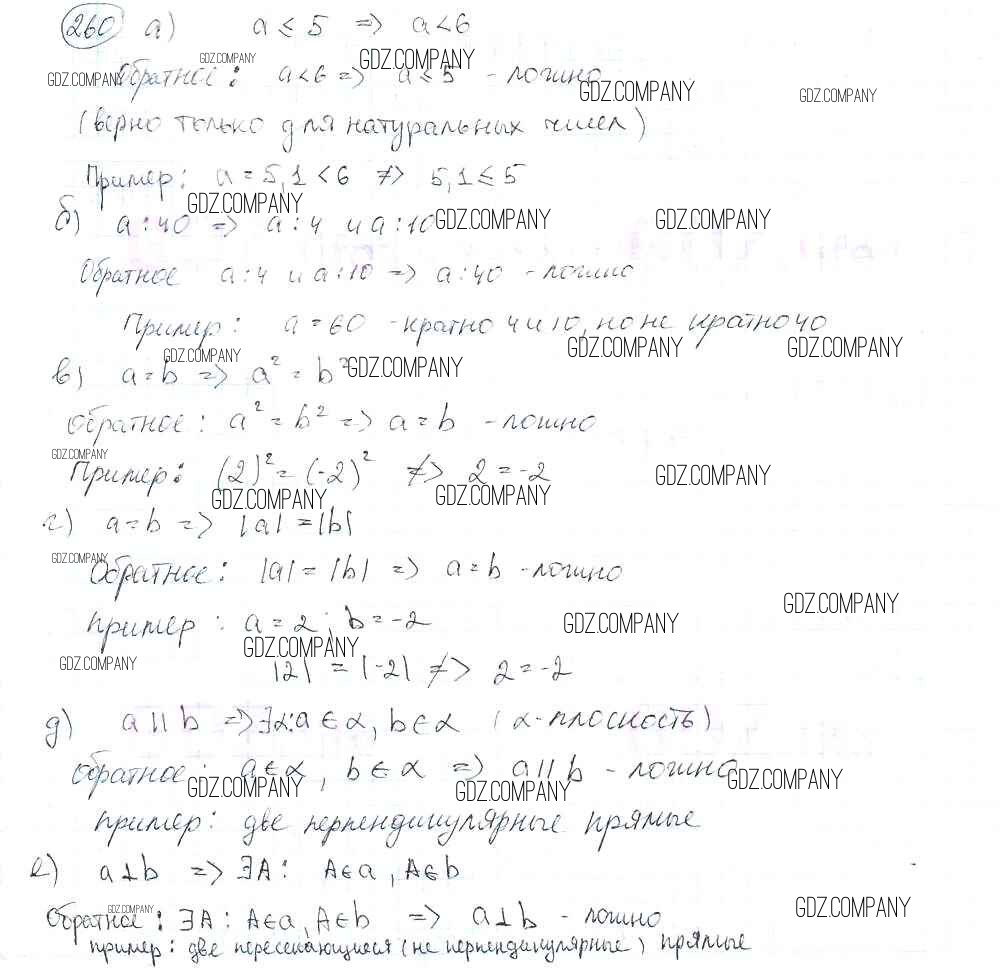 260 а) a ≤ 5 => a < 6
GDZ.COMPANY GDZ.COMPANY
Обратное: a<6 => a ≤ 5 - ложно
GDZ.COMPANY GDZ.COMPANY GDZ.COMPANY
(верно только для натуральных чисел)
Пример: a = 5,1 < 6 ≠> 5,1 ≤ 5
GDZ.COMPANY GDZ.COMPANY GDZ.COMPANY
б) a:40 => a:4 и a:10
Обратное a:4 и a:10 => a:40 - ложно
Пример: a = 60 - кратно 4 и 10, но не кратно 40
GDZ.COMPANY GDZ.COMPANY GDZ.COMPANY
в) a = b => a² = b²
GDZ.COMPANY
Обратное: a² = b² => a = b - ложно
GDZ.COMPANY
Пример: (2)² = (-2)² ≠> 2 = -2
GDZ.COMPANY
GDZ.COMPANY GDZ.COMPANY
г) a = b => |a| = |b|
GDZ.COMPANY
Обратное: |a| = |b| => a = b - ложно
GDZ.COMPANY
пример: a = 2; b = -2
GDZ.COMPANY
GDZ.COMPANY GDZ.COMPANY
|2| = |-2| ≠> 2 = -2
д) a || b => ∃α: a ∈ α, b ∈ α (α - плоскость)
обратное: a ∈ α, b ∈ α => a || b - ложно
GDZ.COMPANY GDZ.COMPANY GDZ.COMPANY
пример: две перпендикулярные прямые
е) a ⊥ b => ∃A: A ∈ a, A ∈ b
GDZ.COMPANY GDZ.COMPANY
Обратное: ∃A: A ∈ a, A ∈ b => a ⊥ b - ложно
пример: две пересекающиеся (не перпендикулярные) прямые